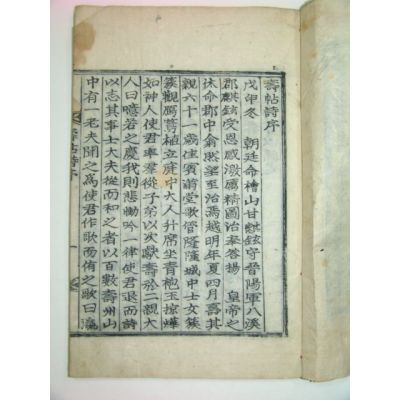 壽帖詩序
戊申冬 朝廷命檜山甘麒鉉守晋陽軍八溪
郡麒鉉受恩感激厲精圖治奉答揚 皇帝之
休命郡中翕然望至治焉越明年夏四月壽其
親六十一歲佳賓滿堂歌管隆隆城中士女簇
簇觀焉植立庭中大人升席坐青袍玉燁
如神人使君率羣從子弟以次獻壽於二親大
人曰噫若之慶我則悲慟吟一律使君退而詩
以志其事士大夫從而和之者以百數壽州山
中有一老夫聞之爲使君作歌而侑之歌曰瀛
壽帖詩序 一